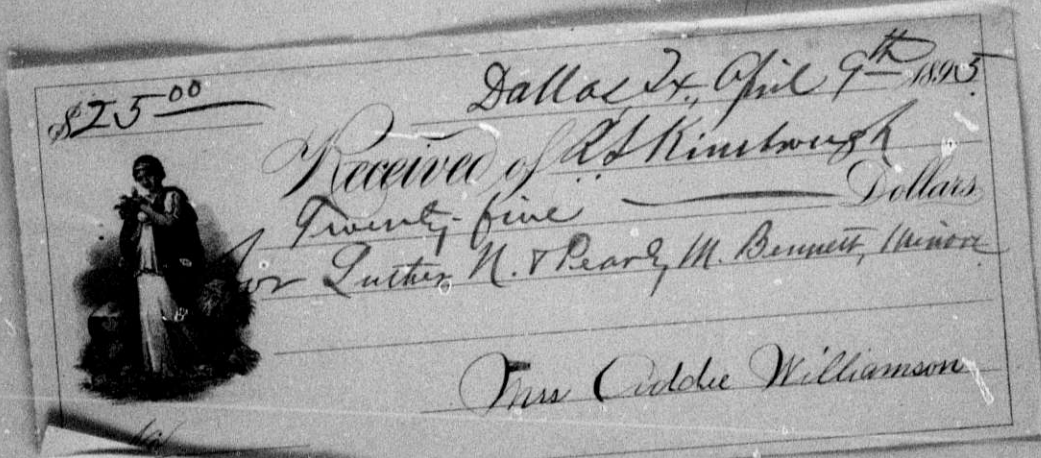 $25 00
Dallas Tx, April 9th 1895
Received of R S Kimbrough
Twenty-five Dollars
for Luther N. & Pearly M. Bennett, Minors
Mrs Addie Williamson